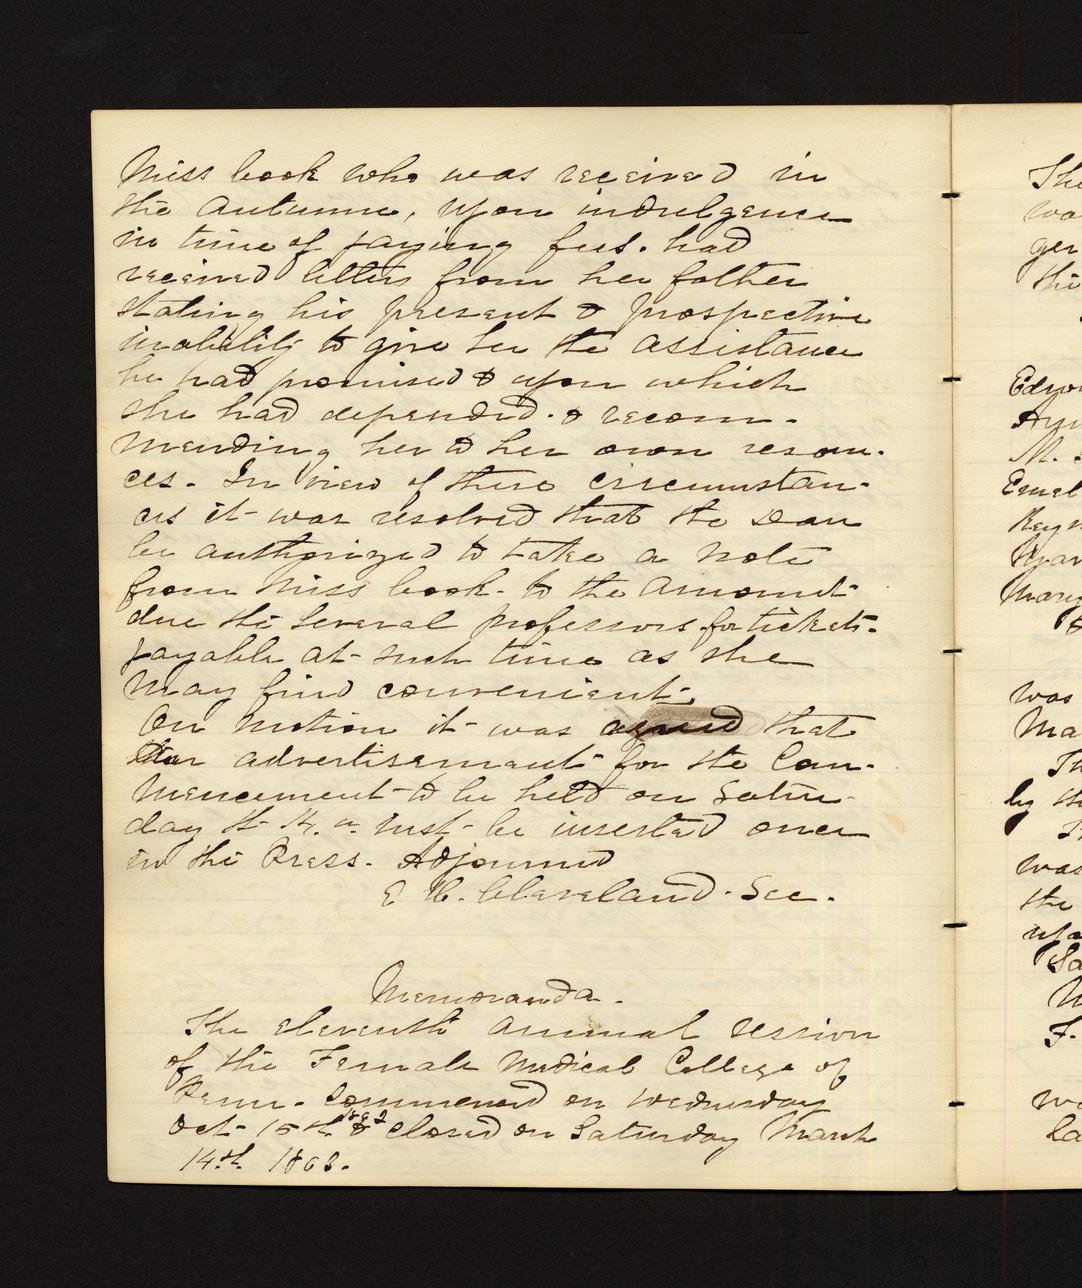 Miss Cook who was received in
the Autumn, upon indulgence
in time of paying fees. had
received letters from her father
stating his present & prospective
inability to give her the assistance
he had promised & upon which
she had depended. & recom-
mending her to her own resour-
ces. In view of these circumstan-
ces it was resolved that the Dean
be authorized to take a note
from Miss Cook to the amount
due the several professors for tickets.
payable at such time as she
may find convenient.
On motion it was agreed that
an advertisement for the Com-
mencement to be held on Satur-
day the 14th inst. be inserted once
in the Press. Adjourned
E H. Cleveland. Sec.
Memoranda.
The eleventh annual session
of the Female Medical College of
Penn. Commenced on Wednesday
Oct 15th 1862 & closed on Saturday March
14th 1863.
The
ger
the
M.
was
Ma
by th
was
the
F.